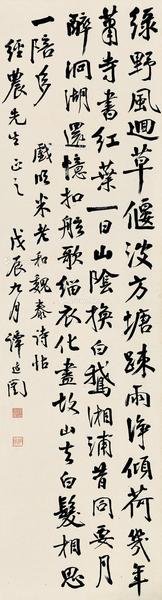 绿野風迴草偃波方塘疎雨淨傾荷幾年
蕭寺書紅葉一日山陰換白鵝湘浦昔同要月
醉洞湖還憶扣舷歌缁衣化盡故山去白髮相思
一陪多
戲临米老和魏泰诗帖
經農先生正之
戊辰九月譚延闓